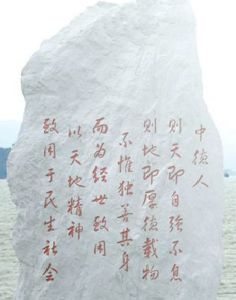 中德人
则天即自强不息
则地即厚德载物
不惟独善其身
而为经世致用
以天地精神
致用于民生社会